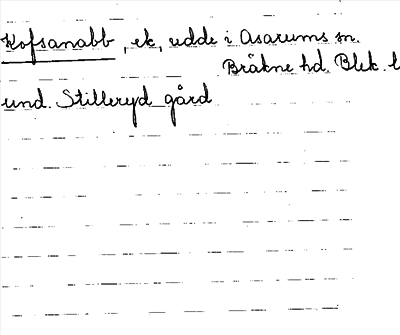 Kofsanabb, ek, udde i Asarums sn.
Bråkne hd. Blek. l
und. Stilleryd gård